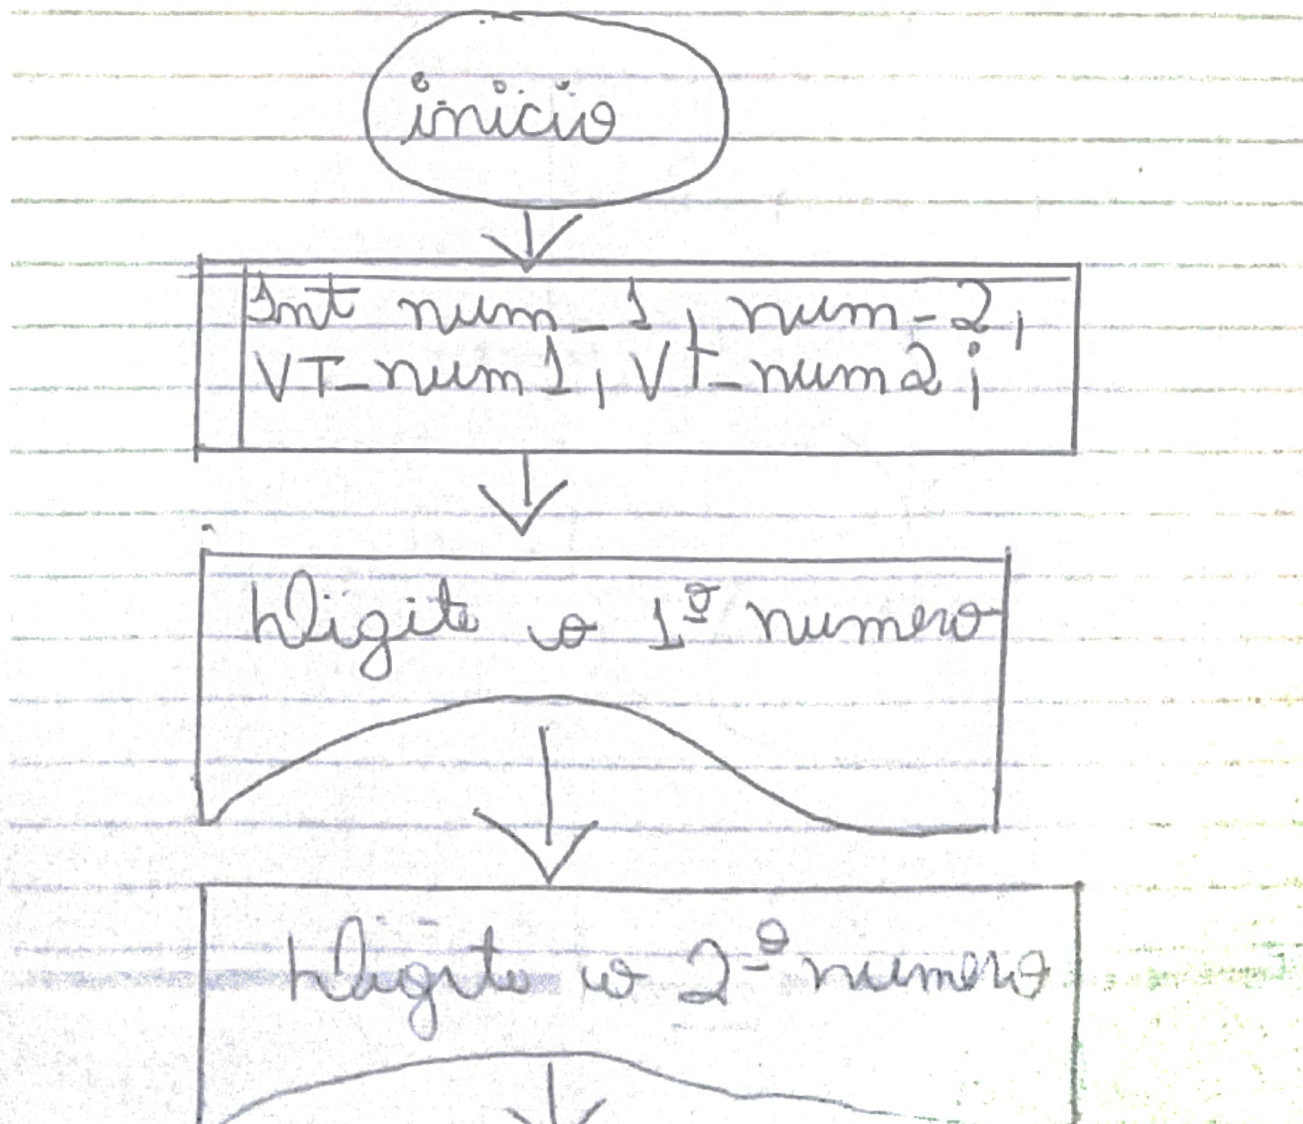 inicio
Int num_1, num-2,
VT_num1, Vt_num2;
Digite o 1º numero
Digite o 2º numero